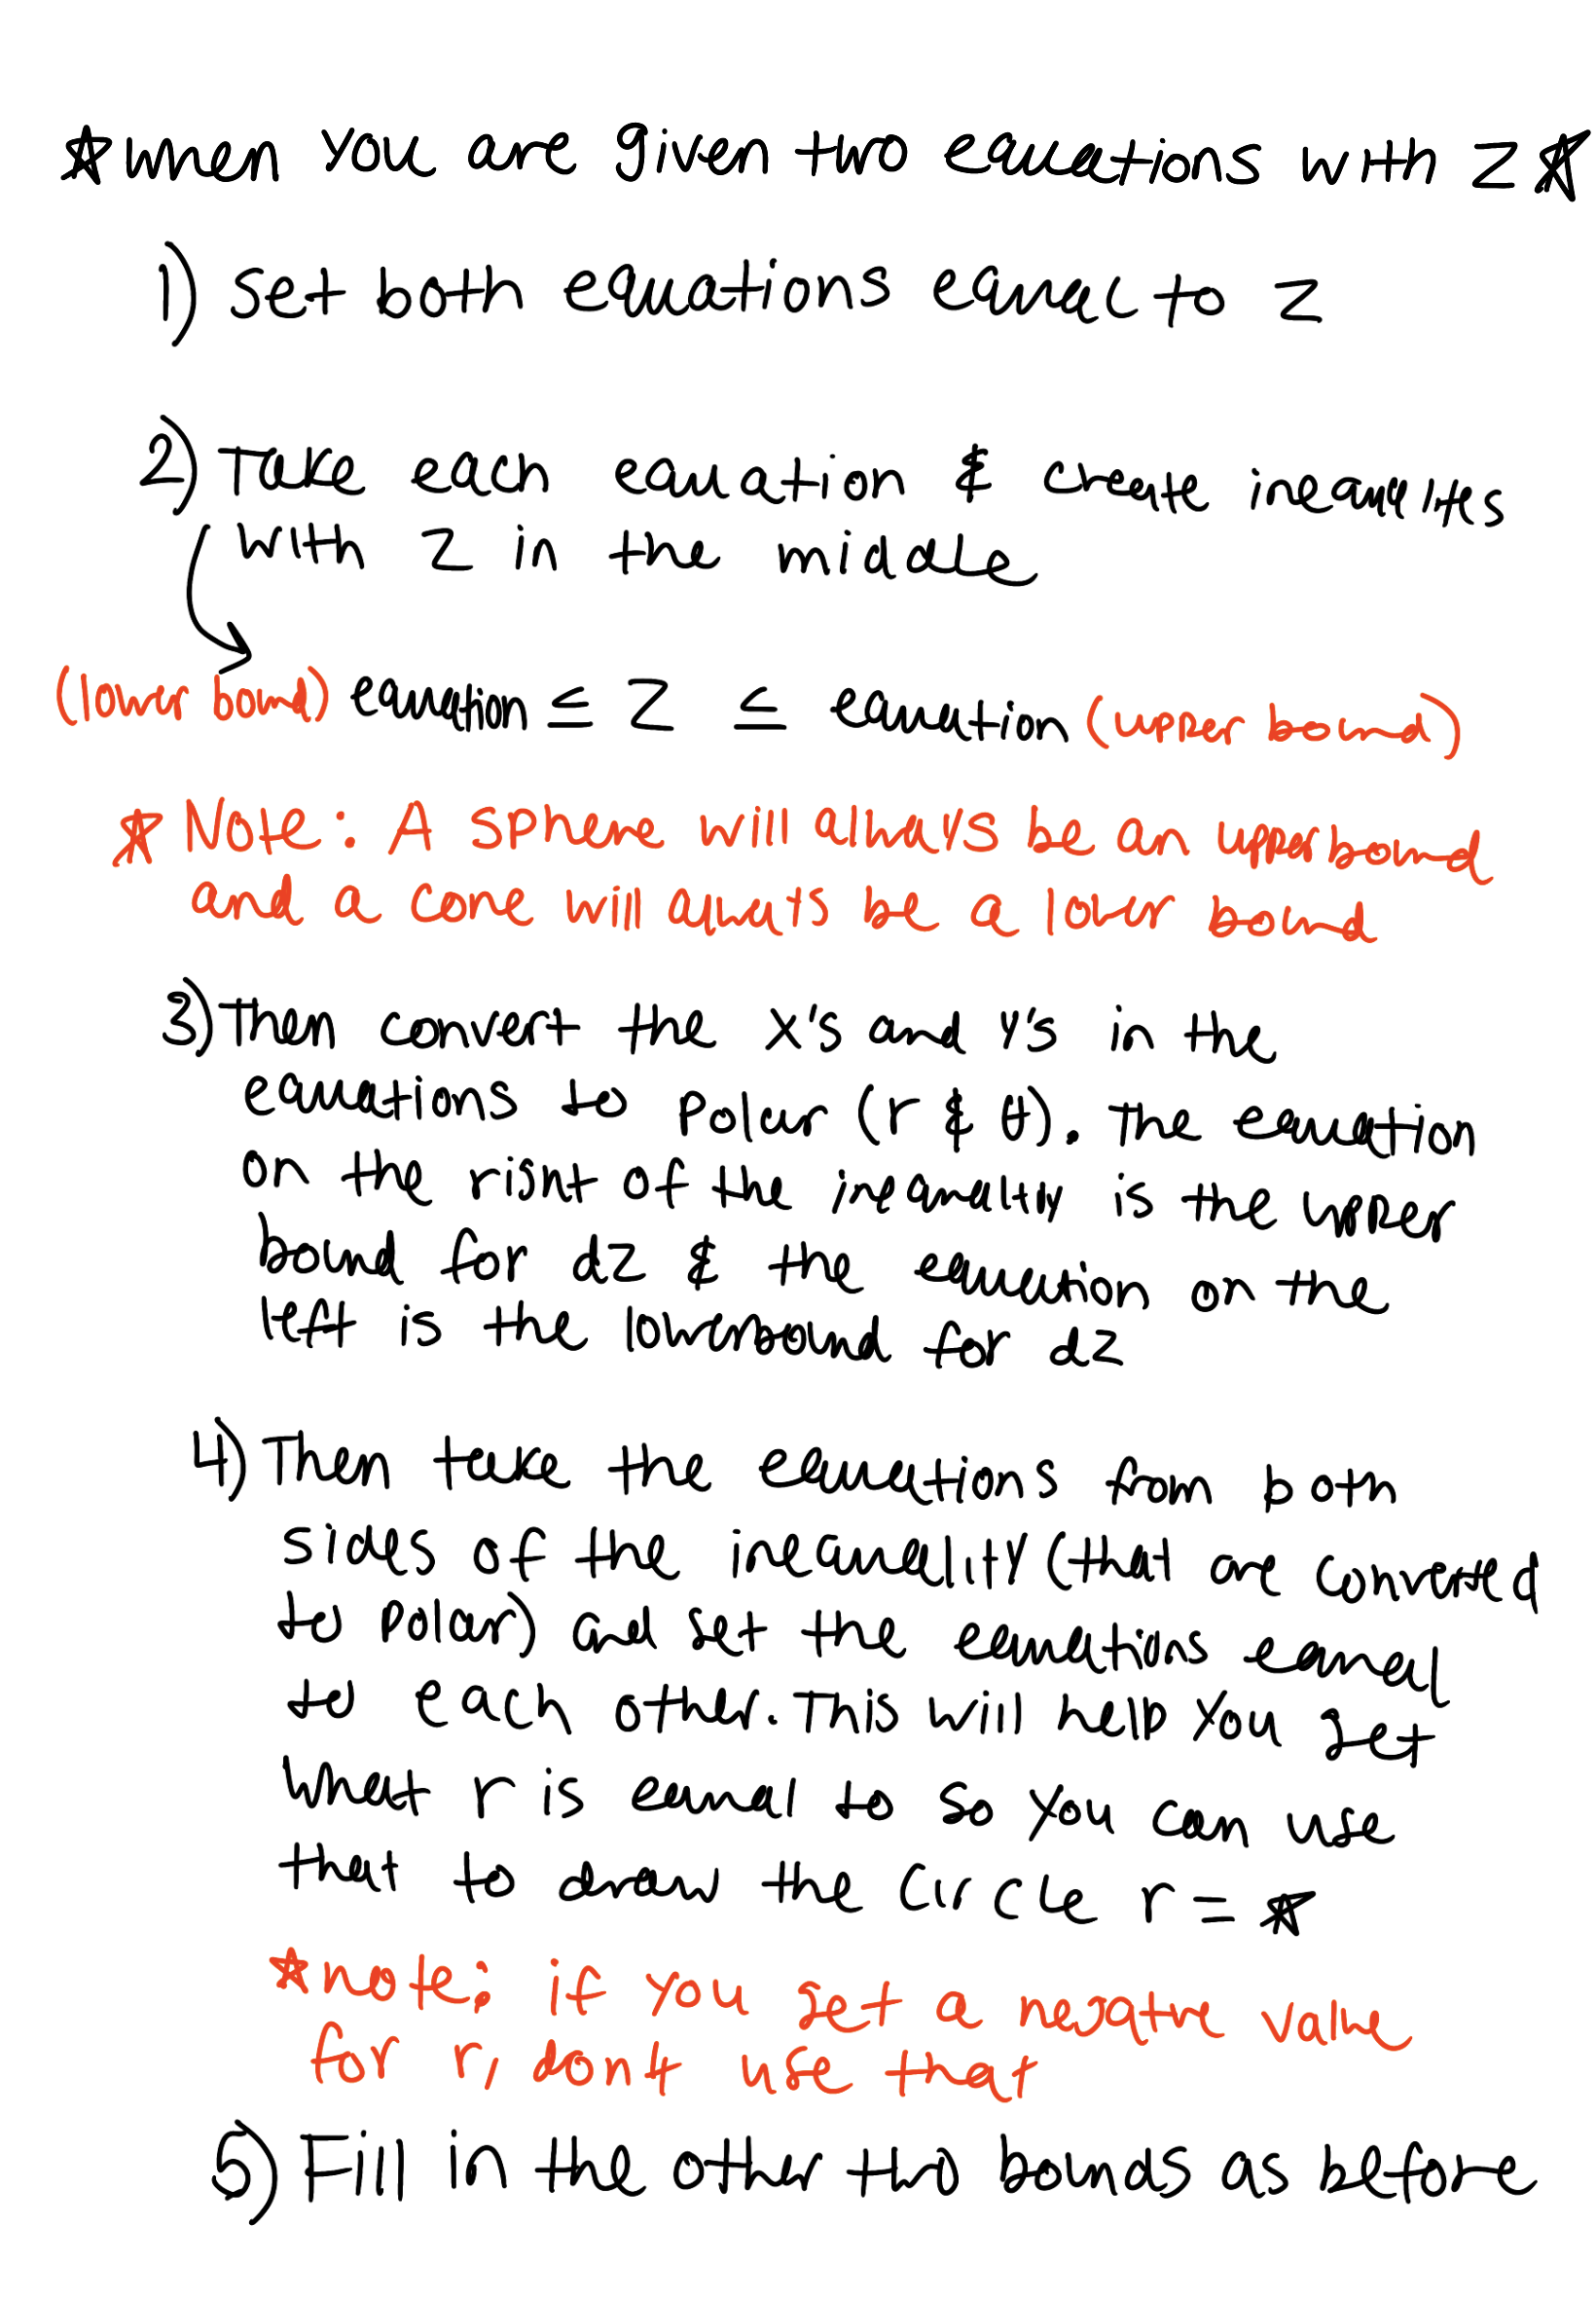 ☆ when you are given two equations with z ☆
1) set both equations equal to z
2) Take each equation & create inequalites
with z in the middle
(lower bound) equation ≤ z ≤ equation (upper bound)
☆ Note: A sphere will always be an upper bound
and a cone will always be a lower bound
3) Then convert the x's and y's in the
equations to polar (r & θ). The equation
on the right of the inequality is the upper
bound for dz & the equation on the
left is the lowerbound for dz
4) Then take the equations from both
sides of the inequality (that are converted
to polar) and set the equations equal
to each other. This will help you get
what r is equal to so you can use
that to draw the circle r = ☆
☆ note: if you get a negative value
for r, don't use that
5) Fill in the other two bounds as before